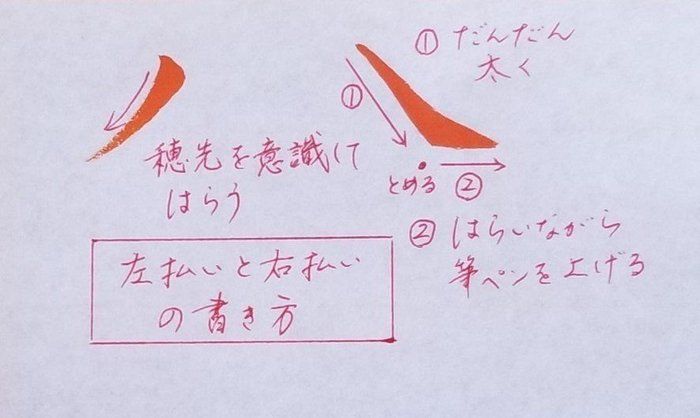 穂先を意識して
はらう
①
① だんだん
太く
とめる ②
② はらいながら
筆ペンを上げる
左払いと右払い
の書き方